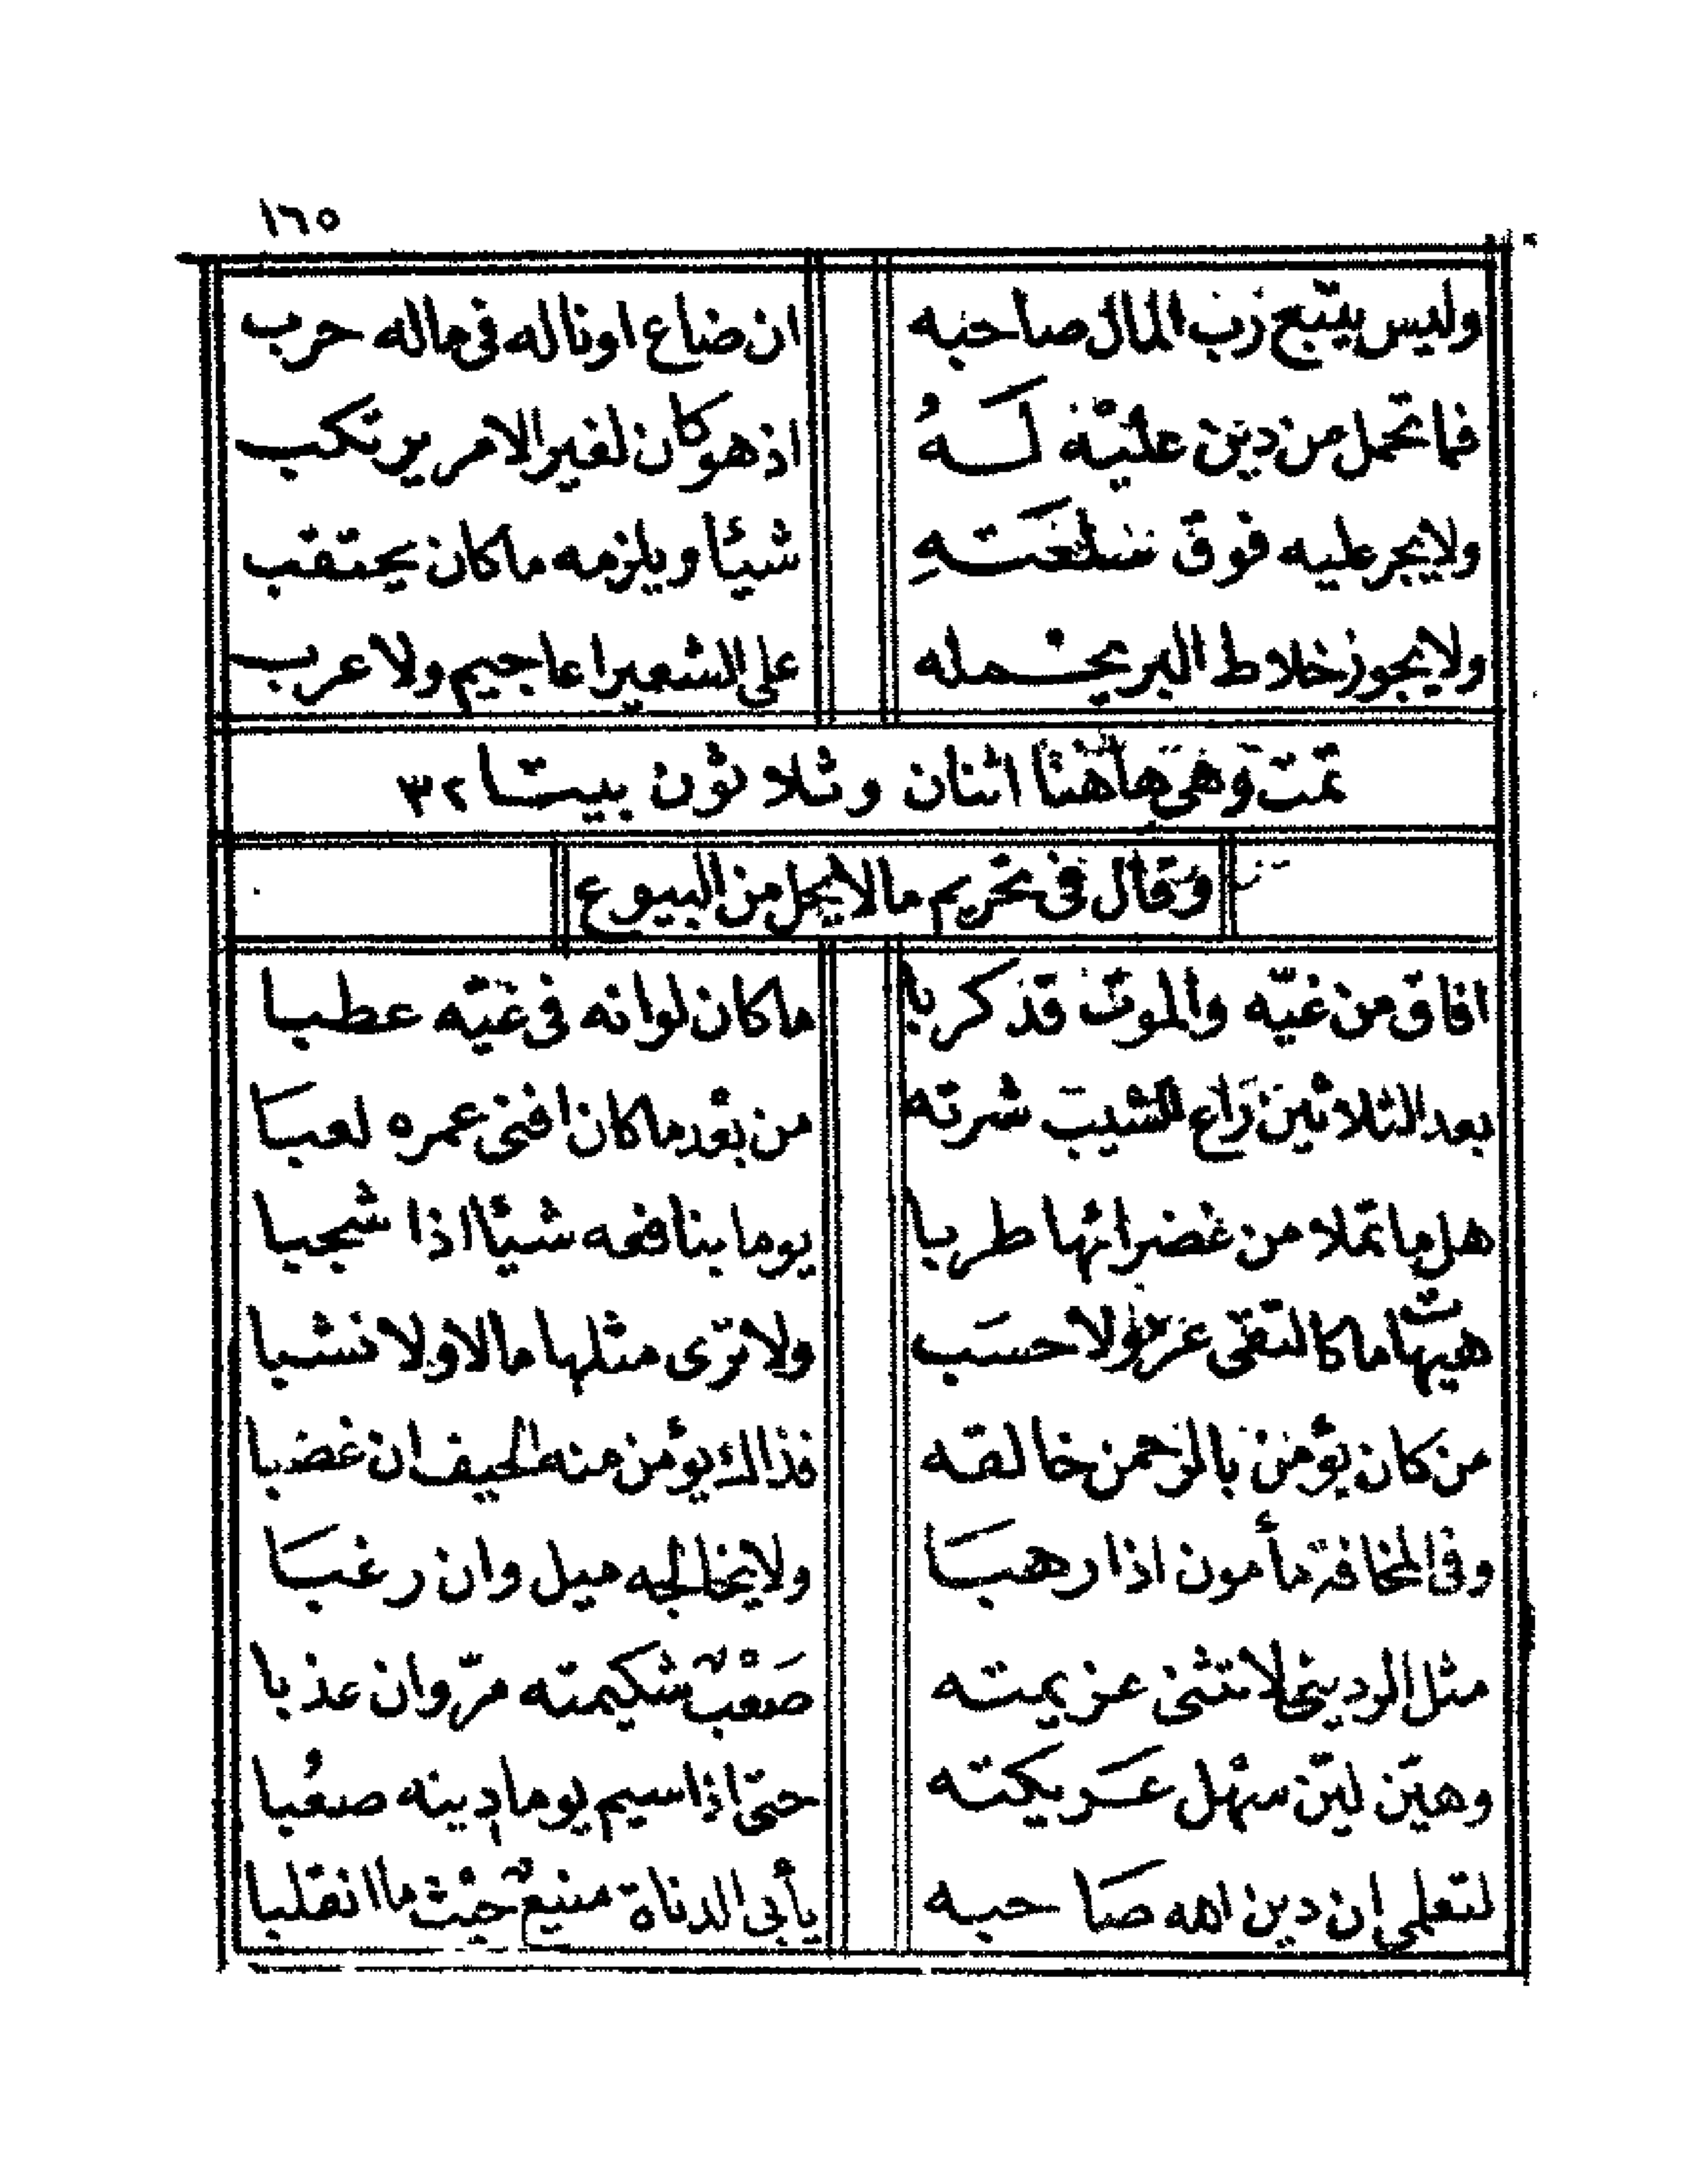 ١٦٥
وليس يتبع رب المال صاحبه ان ضاع او ناله في ماله حرب
فما تحمل من دين عليه لَهُ اذ هو كان لغير الامر يرتكب
ولا يجر عليه فوق سلعتهِ شيئا ويلزمه ما كان يحتقب
ولا يجوز خلاط البر يحمله على الشعير اعاجيم ولا عرب
تمت وهي هاهنا اثنان وثلاثون بيتا ٣٢
وقال في تحريم ما لا يحل من البيوع
افاق من غيّه والموت قد كربا ما كان لو انه في غيّه عطبا
بعد الثلاثين راع الشيب شرته من بعْد ما كان افنى عمره لعبا
هل ما تملا من غضرائها طربا يوما بنافعه شيئا اذا شجبا
هيهات ما كالتقى عز ولا حسب ولا ترى مثلها مالا ولا نشبا
من كان يؤمن بالرحمن خالقه فذاك يؤمن منه الحيف ان غضبا
وفي المخافة مأمون اذا رهبا ولا يخالجه ميل وان رغبا
مثل الرديني لا تثنى عزيمته صَعْبٌ شكيمته مرّ وان عذبا
وهيّن ليّن سهْل عريكته حتى اذا سيم يوما دينه صعُبا
لتعلمي ان دين الله صاحبه يأبى الدناة منيعٌ حيث ما انقلبا